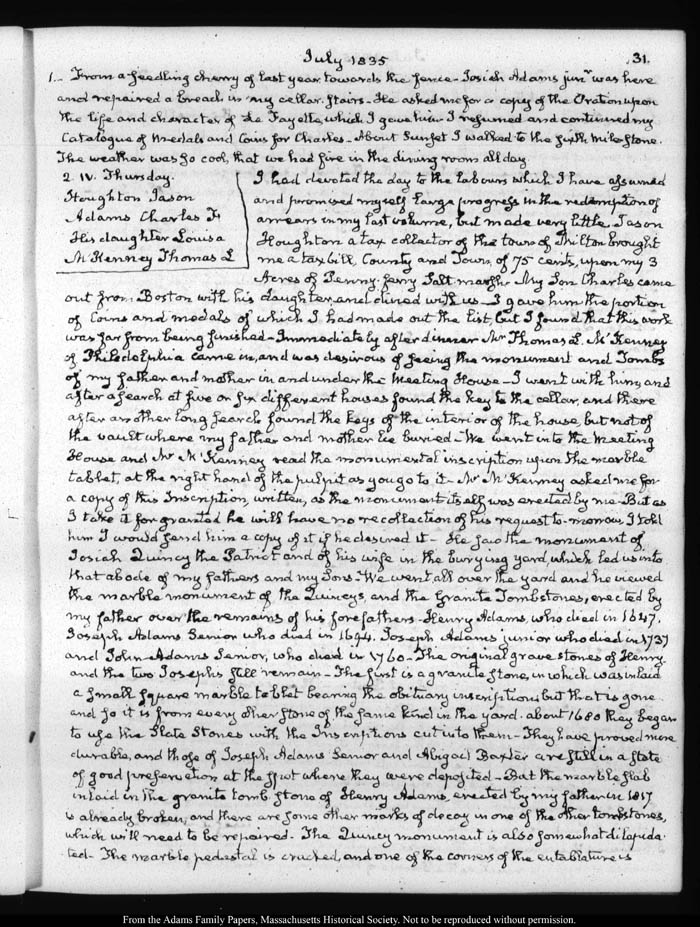 July 1835
31.
1.- From a seedling cherry of last year towards the fence - Josiah Adams junr. was here
and repaired a breach in my cellar stairs - He asked me for a copy of the Oration upon
the life and character of La Fayette, which I gave him - I resumed and continued my
Catalogue of Medals and Coins for Charles - About Sunset I walked to the sixth mile stone.
The weather was so cool, that we had fire in the dining room all day.
2. IV. Thursday.
Houghton Jason
Adams Charles F
His daughter Louisa
McKenney Thomas L
I had devoted the day to the labours which I have assumed
and promised myself large progress in the redemption of
arrears in my last volume, but made very little. Jason
Houghton a tax collector of the town of Milton brought
me a tax bill, County and Town, of 75 cents, upon my 3
Acres of Penny ferry Salt marsh - My Son Charles came
out from Boston with his daughter, and dined with us - I gave him the portion
of Coins and medals of which I had made out the list, but I found that this work
was far from being finished - Immediately after dinner Mr Thomas L. McKenney
of Philadelphia came in, and was desirous of seeing the monument and Tombs
of my father and mother in and under the Meeting House - I went with him, and
after a search at five or six different houses found the key to the cellar, and there
after another long search found the keys of the interior of the house, but not of
the vault where my father and mother lie buried - We went into the Meeting
House and Mr McKenney read the monumental inscription upon the marble
tablet, at the right hand of the pulpit as you go to it - Mr McKenney asked me for
a copy of this Inscription, written, as the monument itself was erected by me - But as
I take it for granted he will have no recollection of his request to-morrow, I told
him I would send him a copy of it if he desired it - He saw the monument of
Josiah Quincy the Patriot and of his wife in the burying yard, which led us into
that abode of my fathers and my Sons - We went all over the yard and he viewed
the marble monument of the Quincys, and the Granite Tombstones, erected by
my father over the remains of his forefathers - Henry Adams, who died in 1647.
Joseph Adams Senior who died in 1694. Joseph Adams junior who died in 1737
and John Adams Senior, who died in 1760 - The original grave stones of Henry,
and the two Josephs still remain - The first is a granite stone, in which was inlaid
a small square marble tablet bearing the obituary inscription but that is gone
and so it is from every other stone of the same kind in the yard. about 1680 they began
to use the Slate Stones with the Inscriptions cut into them - They have proved more
durable, and those of Joseph Adams Senior and Abigail Baxter are still in a state
of good preservation at the spot where they were deposited - But the marble slab
inlaid in the granite tomb stone of Henry Adams, erected by my father in 1817
is already broken, and there are some other marks of decay in one of the other tombstones,
which will need to be repaired - The Quincy monument is also somewhat dilapida-
ted - The marble pedestal is cracked, and one of the corners of the entablature is
From the Adams Family Papers, Massachusetts Historical Society. Not to be reproduced without permission.